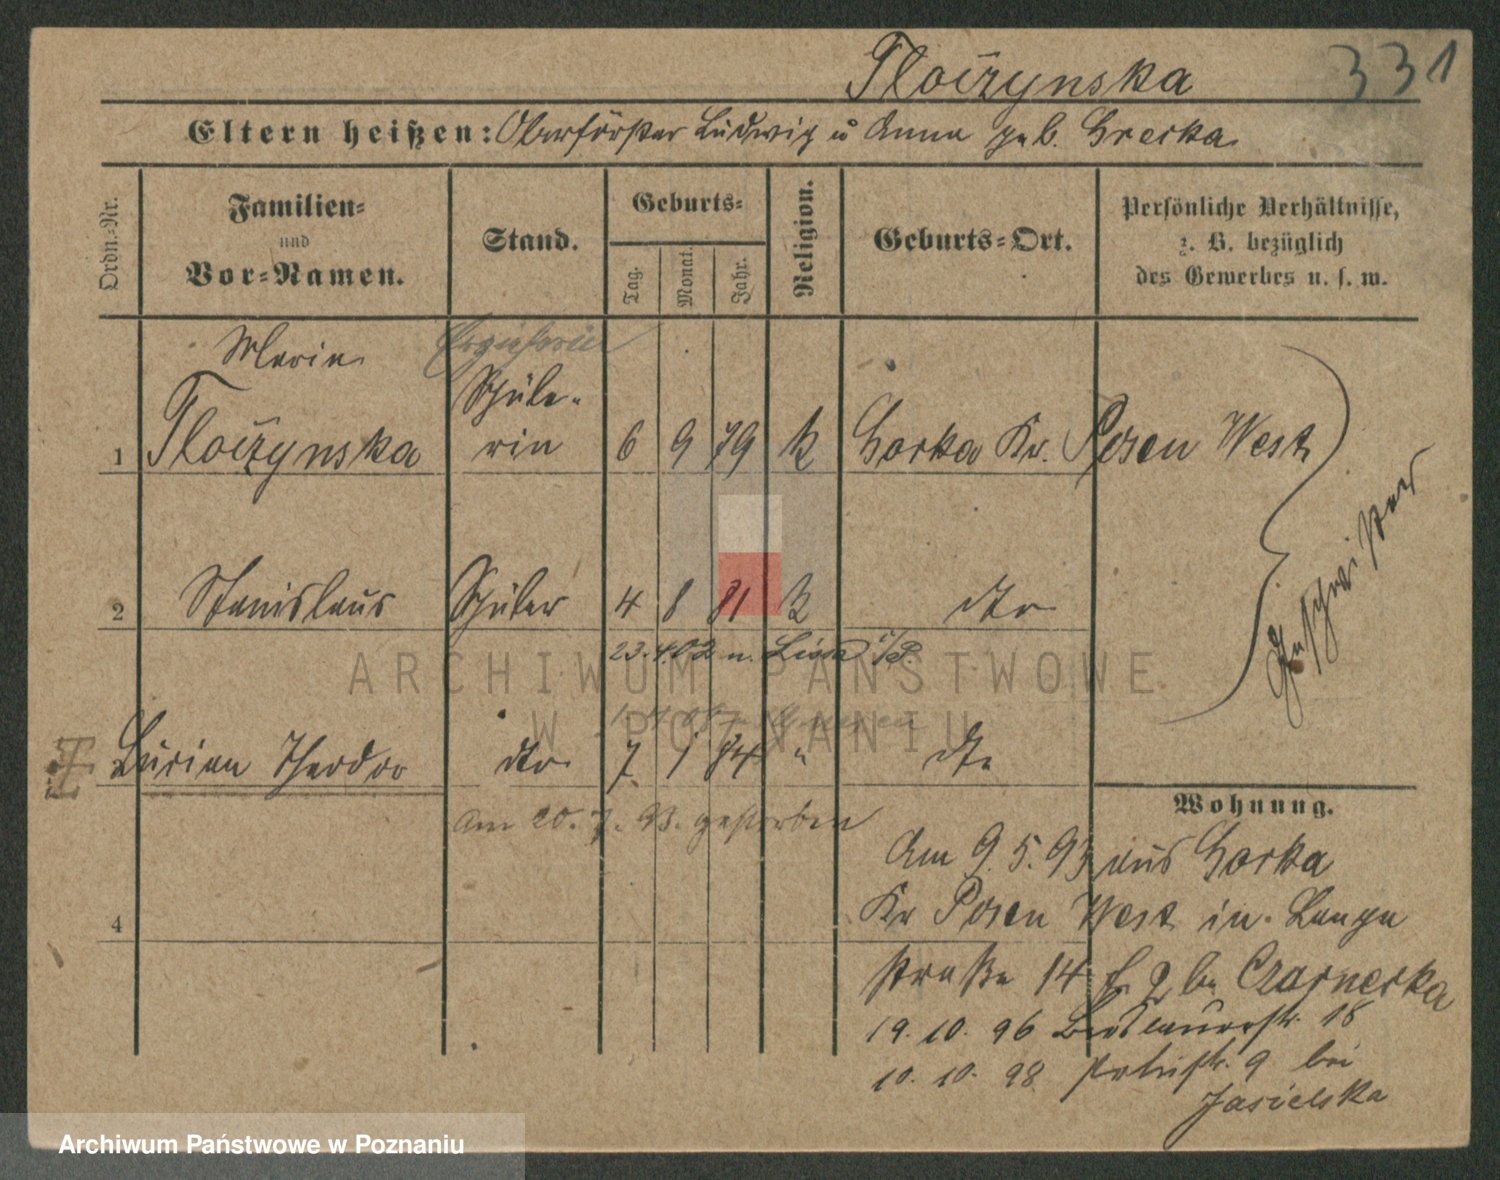 331
Tloczynska
Eltern heißen: Oberförster Ludwig u Anna geb. Grecka
Ordn.-Nr.
Familien-
und
Vor-Namen.
Stand.
Geburts-
Tag.
Monat.
Jahr.
Religion.
Geburts-Ort.
Persönliche Verhältnisse,
z. B. bezüglich
des Gewerbes u. s. w.
Maria Erzieherin
Schüle-
1 Tloczynska rin 6 9 79 k Gorka Kr. Posen West
Geschwister
2 Stanislaus Schüler 4 8 81 k dto
23.4.02 n. Lissa i/P.
Lucian Theodor dto 7 1 84 " dto
Am 20.7.93. gestorben
Wohnung.
4
Am 9.5.93 aus Gorka
Kr Posen West in Lange
straße 14 bei Czarnecka
19.10.96 18
10.10.98 9 bei
Jasielska
ARCHIWUM PAŃSTWOWE
W POZNANIU
Archiwum Państwowe w Poznaniu